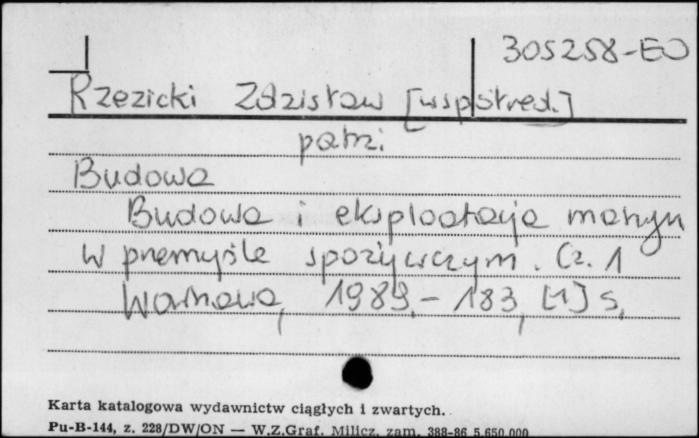 305258-EO
Rzezicki Zdzisław [współred.]
patrz.
Budowa
Budowa i eksploatacja maszyn
w przemyśle spożywczym. Cz. 1
Warszawa, 1989.- 183, [1] s.
Karta katalogowa wydawnictw ciągłych i zwartych.
Pu-B-144, z. 228/DW/ON — W.Z.Graf. Milicz, zam. 388-86 5.650.000